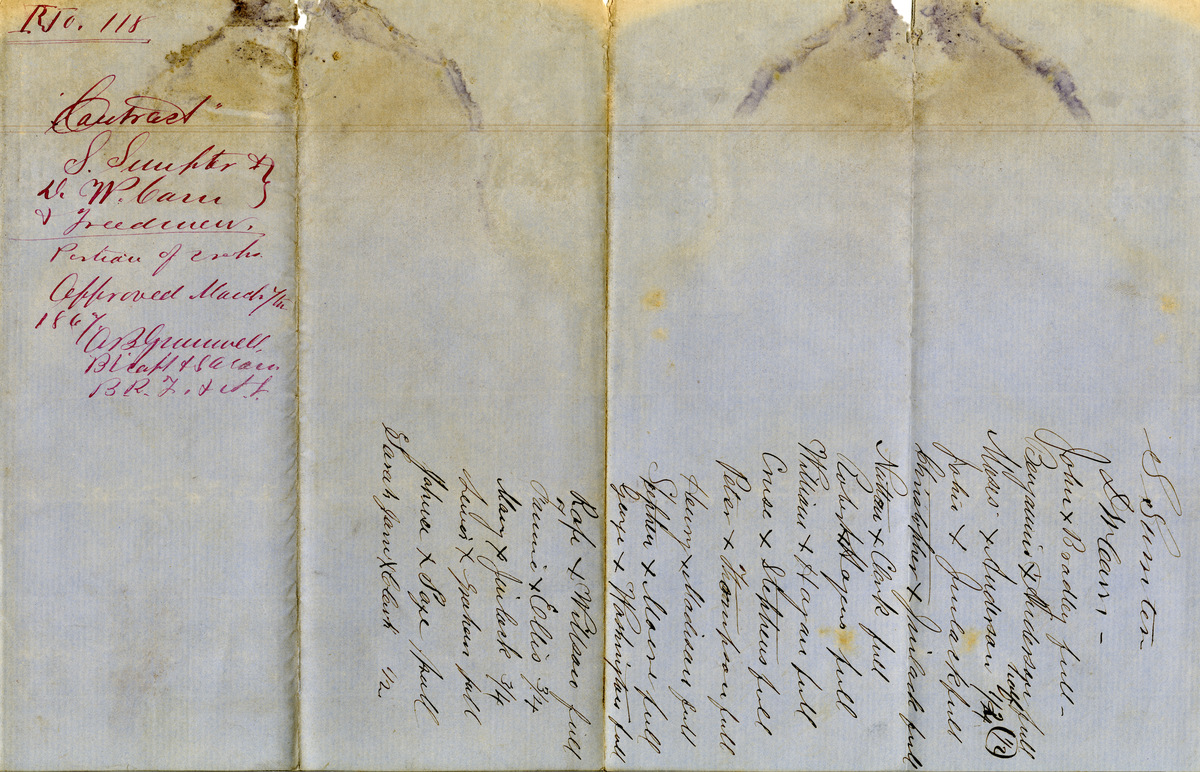 No. 118
"Contract"
S. Sumpter &
D. W. Carn
& Freedmen.
Portion of crops.
Approved March 7th
1867
A B Grumwell,
Bt Capt &
B R. F. & A. L.
S Sumter
D W Carn -
John x Bradley full -
Benjamin x Anderson full
Moses x Anderson half 1/2 (1/2)
John x Gunlack full
Christopher x Gunlack full
x Clark full
Robert x Hagan full
William x Hagan full
x Stephens full
Peter x Thompson full
Henry x Madison full
Stephen x Moore full
George x Washington full
Rafe x Wilson full
Fannie x Ellis 3/4
Mary x Gunlack 3/4
Lewis x Graham full
x Page full
Sarah Jane x Clark 1/2